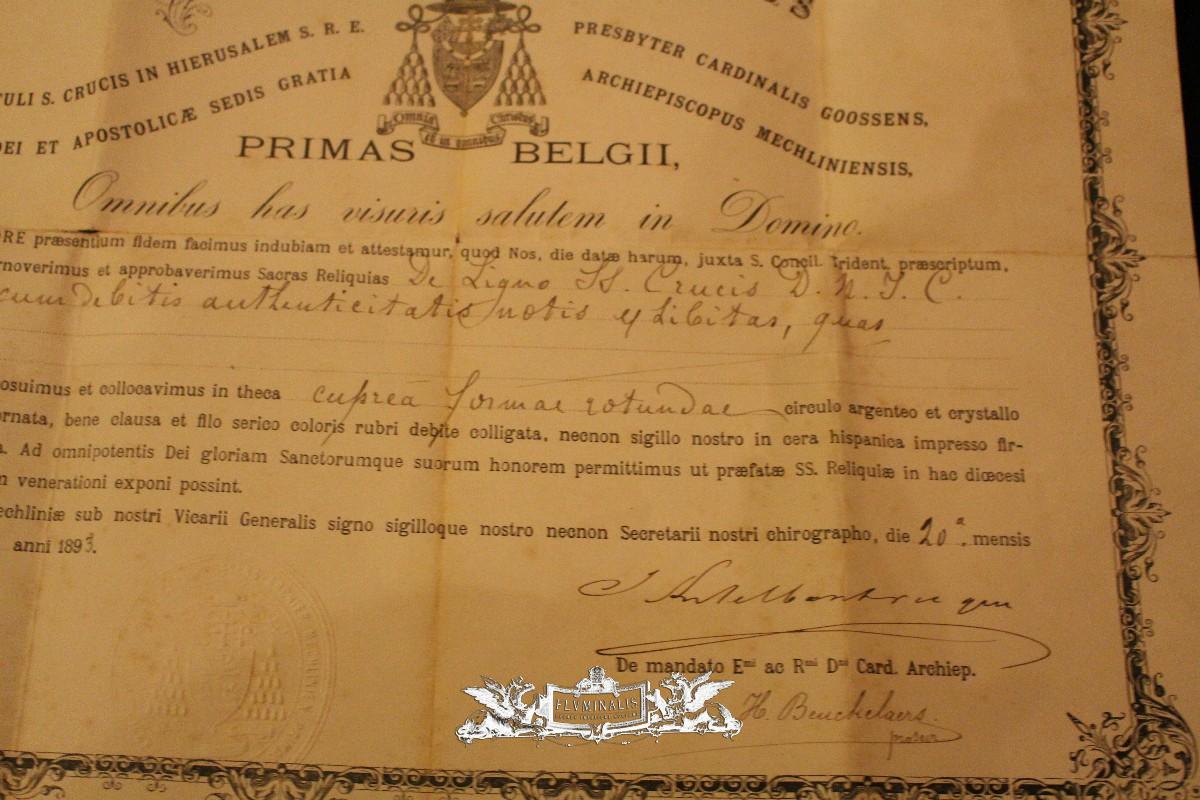 TULI S. CRUCIS IN HIERUSALEM S. R. E. PRESBYTER CARDINALIS GOOSSENS,
DEI ET APOSTOLICÆ SEDIS GRATIA ARCHIEPISCOPUS MECHLINIENSIS,
Omnia et in omnibus Christus
PRIMAS BELGII,
Omnibus has visuris salutem in Domino.
ORE præsentium fidem facimus indubiam et attestamur, quod Nos, die datæ harum, juxta S. Concil. Trident. præscriptum,
rnoverimus et approbaverimus Sacras Reliquias De Ligno SS. Crucis D. N. J. C.
cum debitis authenticitatis notis exhibitas, quas
osuimus et collocavimus in theca cuprea formae rotundae circulo argenteo et crystallo
ornata, bene clausa et filo serico coloris rubri debite colligata, necnon sigillo nostro in cera hispanica impresso fir-
a. Ad omnipotentis Dei gloriam Sanctorumque suorum honorem permittimus ut præfatæ SS. Reliquiæ in hac diœcesi
n venerationi exponi possint.
echliniæ sub nostri Vicarii Generalis signo sigilloque nostro necnon Secretarii nostri chirographo, die 20ª. mensis
anni 1893.
De mandato Emi ac Rmi Dni Card. Archiep.
H. Beuckelaers.
FLVMINALIS